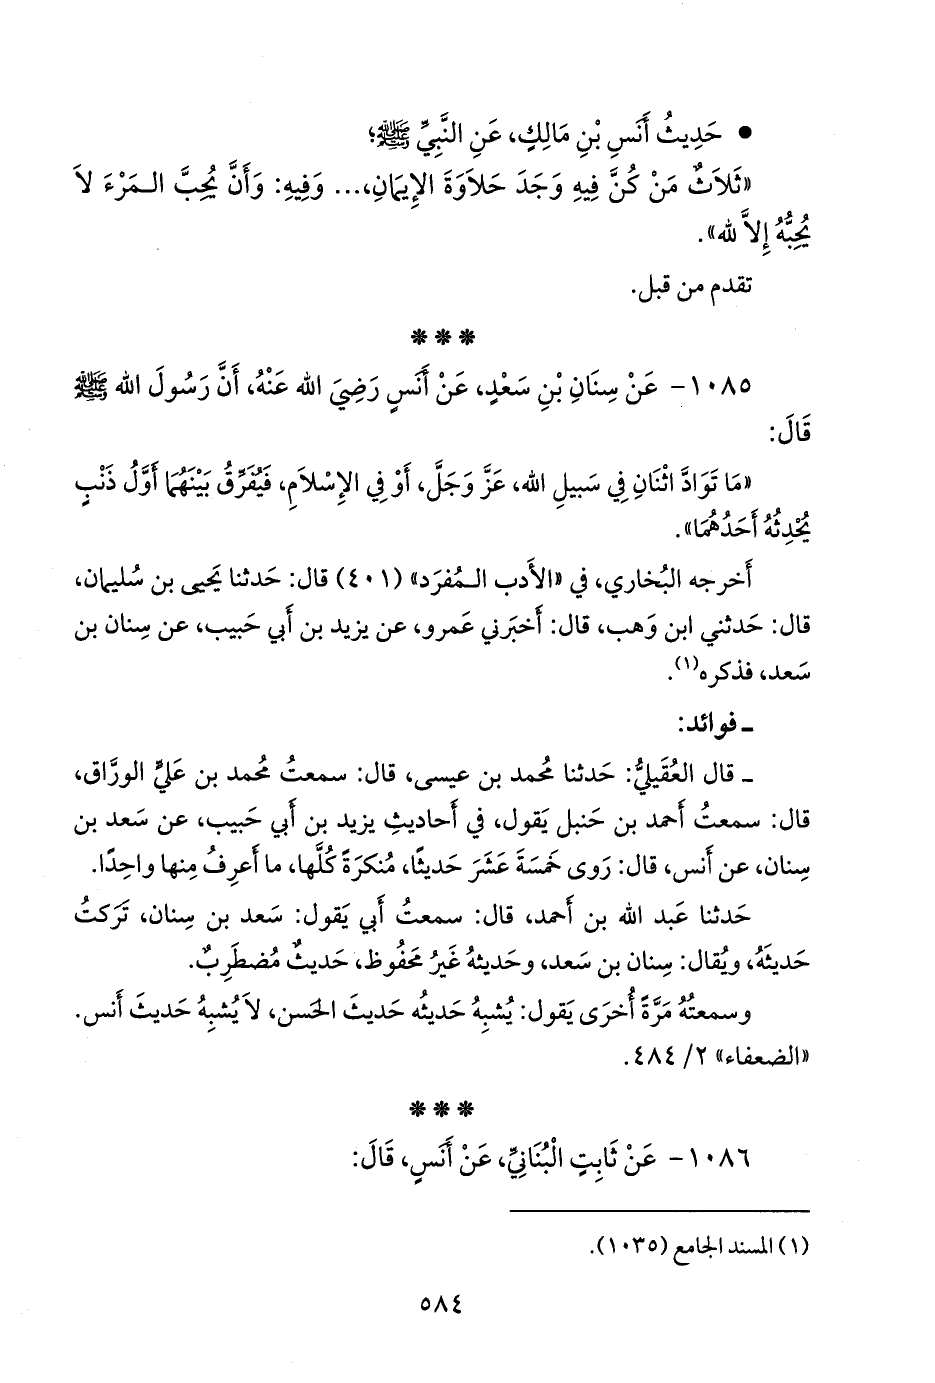 • حَدِيثُ أَنَسِ بْنِ مَالِكٍ، عَنِ النَّبِيِّ ﷺ؛
«ثَلَاثٌ مَنْ كُنَّ فِيهِ وَجَدَ حَلَاوَةَ الإِيمَانِ،... وَفِيهِ: وَأَنَّ يُحِبَّ الـمَرْءَ لاَ
يُحِبُّهُ إِلاَّ لله».
تقدم من قبل.
* * *
١٠٨٥- عَنْ سِنَانِ بْنِ سَعْدٍ، عَنْ أَنَسٍ رَضِيَ الله عَنْهُ، أَنَّ رَسُولَ الله ﷺ
قَالَ:
«مَا تَوَادَّ اثْنَانِ فِي سَبِيلِ الله، عَزَّ وَجَلَّ، أَوْ فِي الإِسْلاَمِ، فَيُفَرِّقُ بَيْنَهُمَا أَوَّلُ ذَنْبٍ
يُحْدِثُهُ أَحَدُهُمَا».
أَخرجه البُخاري، في «الأَدب الـمُفرَد» (٤٠١) قال: حَدثنا يَحيى بن سُليمان،
قال: حَدثني ابن وَهب، قال: أَخبَرني عَمرو، عن يزيد بن أَبي حَبيب، عن سِنان بن
سَعد، فذكره(١).
ـ فوائد:
ـ قال العُقَيليُّ: حَدثنا مُحمد بن عيسى، قال: سمعتُ مُحمد بن عَليٍّ الورَّاق،
قال: سمعتُ أَحمد بن حَنبل يَقول، في أَحاديثِ يزيد بن أَبي حَبيب، عن سَعد بن
سِنان، عن أَنس، قال: رَوى خَمسَةَ عَشَرَ حَديثًا، مُنكرَةً كُلَّها، ما أَعرِفُ مِنها واحِدًا.
حَدثنا عَبد الله بن أَحمد، قال: سمعتُ أَبي يَقول: سَعد بن سِنان، تَرَكتُ
حَديثَهُ، ويُقال: سِنان بن سَعد، وحَديثهُ غَيرُ مَحفُوظ، حَديثٌ مُضطَرِبٌ.
وسمعتُهُ مَرَّةً أُخرَى يَقول: يُشبِهُ حَديثُه حَديثَ الحَسن، لاَ يُشبِهُ حَديثَ أَنس.
«الضعفاء» ٢/ ٤٨٤.
* * *
١٠٨٦- عَنْ ثَابِتٍ الْبُنَانِيِّ، عَنْ أَنَسٍ، قَالَ:
(١) المسند الجامع (١٠٣٥).
٥٨٤